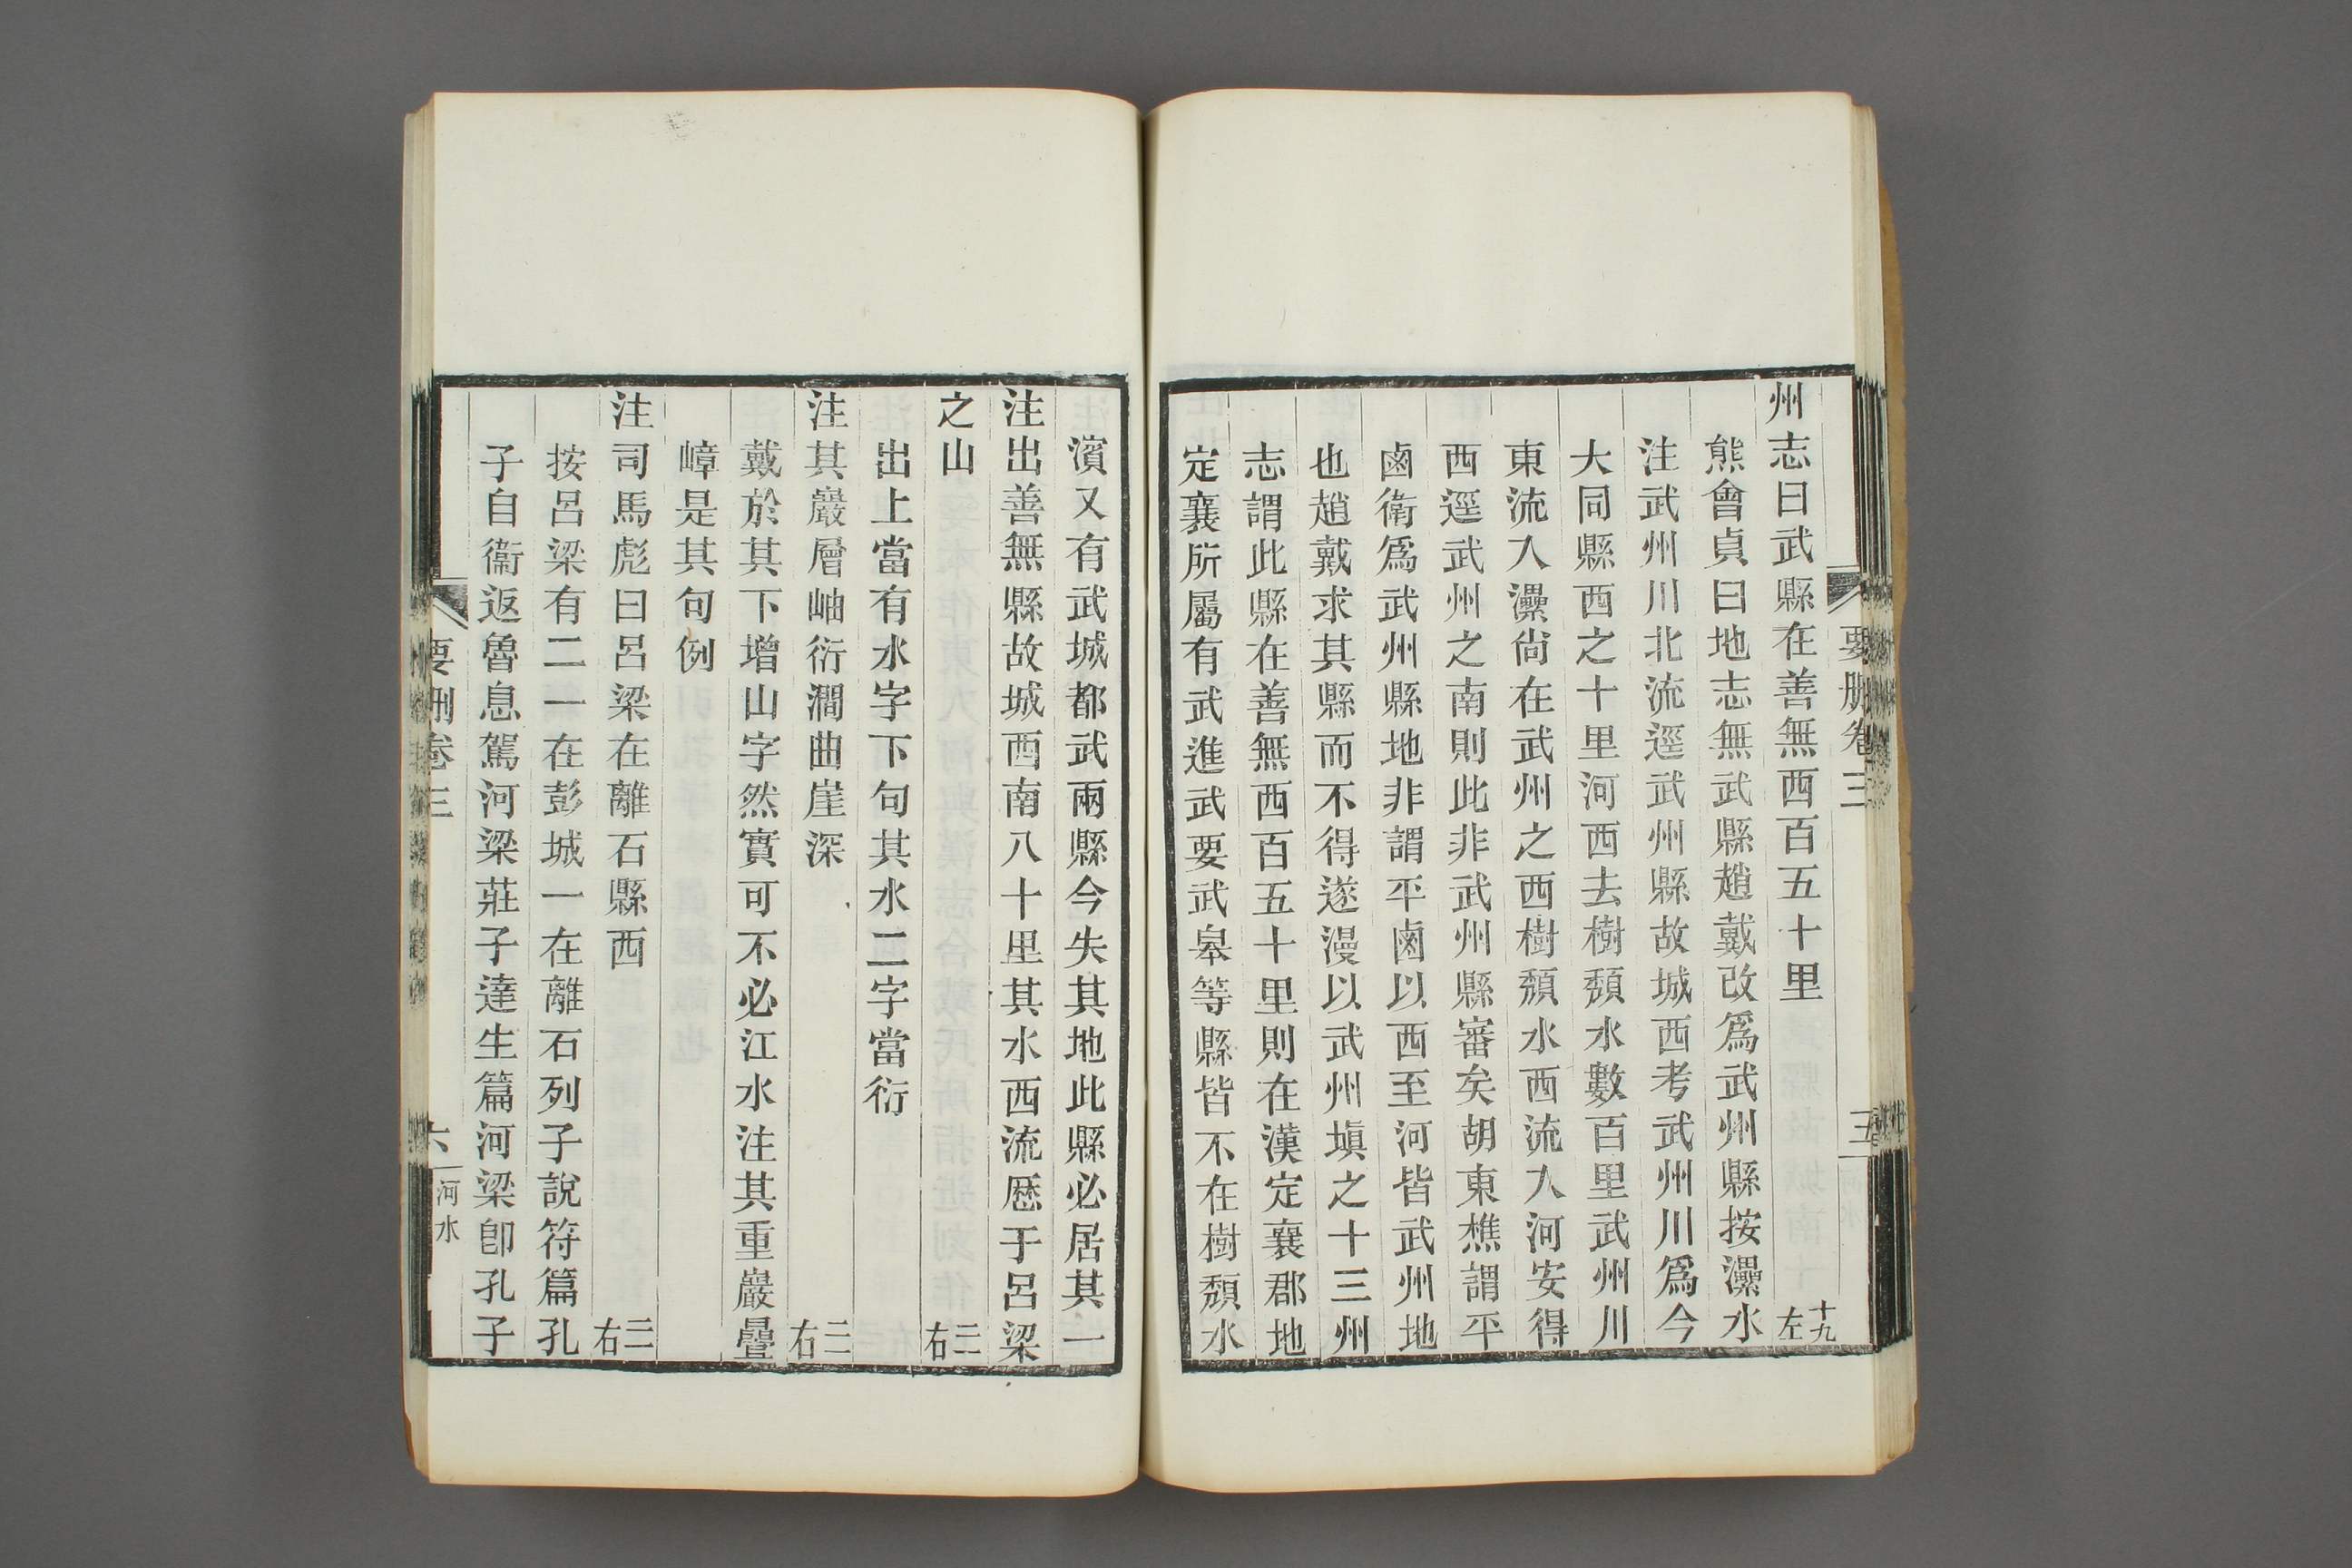 要刪卷三
三
州志曰武縣在善無西百五十里
十九
左
熊會貞曰地志無武縣趙戴改爲武州縣按灅水
注武州川北流逕武州縣故城西考武州川爲今
大同縣西之十里河西去樹頹水數百里武州川
東流入灅尙在武州之西樹頹水西流入河安得
西逕武州之南則此非武州縣審矣胡東樵謂平
鹵衛爲武州縣地非謂平鹵以西至河皆武州地
也趙戴求其縣而不得遂漫以武州塡之十三州
志謂此縣在善無西百五十里則在漢定襄郡地
定襄所屬有武進武要武皋等縣皆不在樹頹水
濱又有武城都武兩縣今失其地此縣必居其一
注出善無縣故城西南八十里其水西流歷于呂梁
之山
二
右
出上當有水字下句其水二字當衍
注其巖層岫衍澗曲崖深
二
右
戴於其下增山字然實可不必江水注其重巖疊
嶂是其句例
注司馬彪曰呂梁在離石縣西
二
右
按呂梁有二一在彭城一在離石列子說符篇孔
子自衞返魯息駕河梁莊子達生篇河梁卽孔子
要刪卷三
六
河水